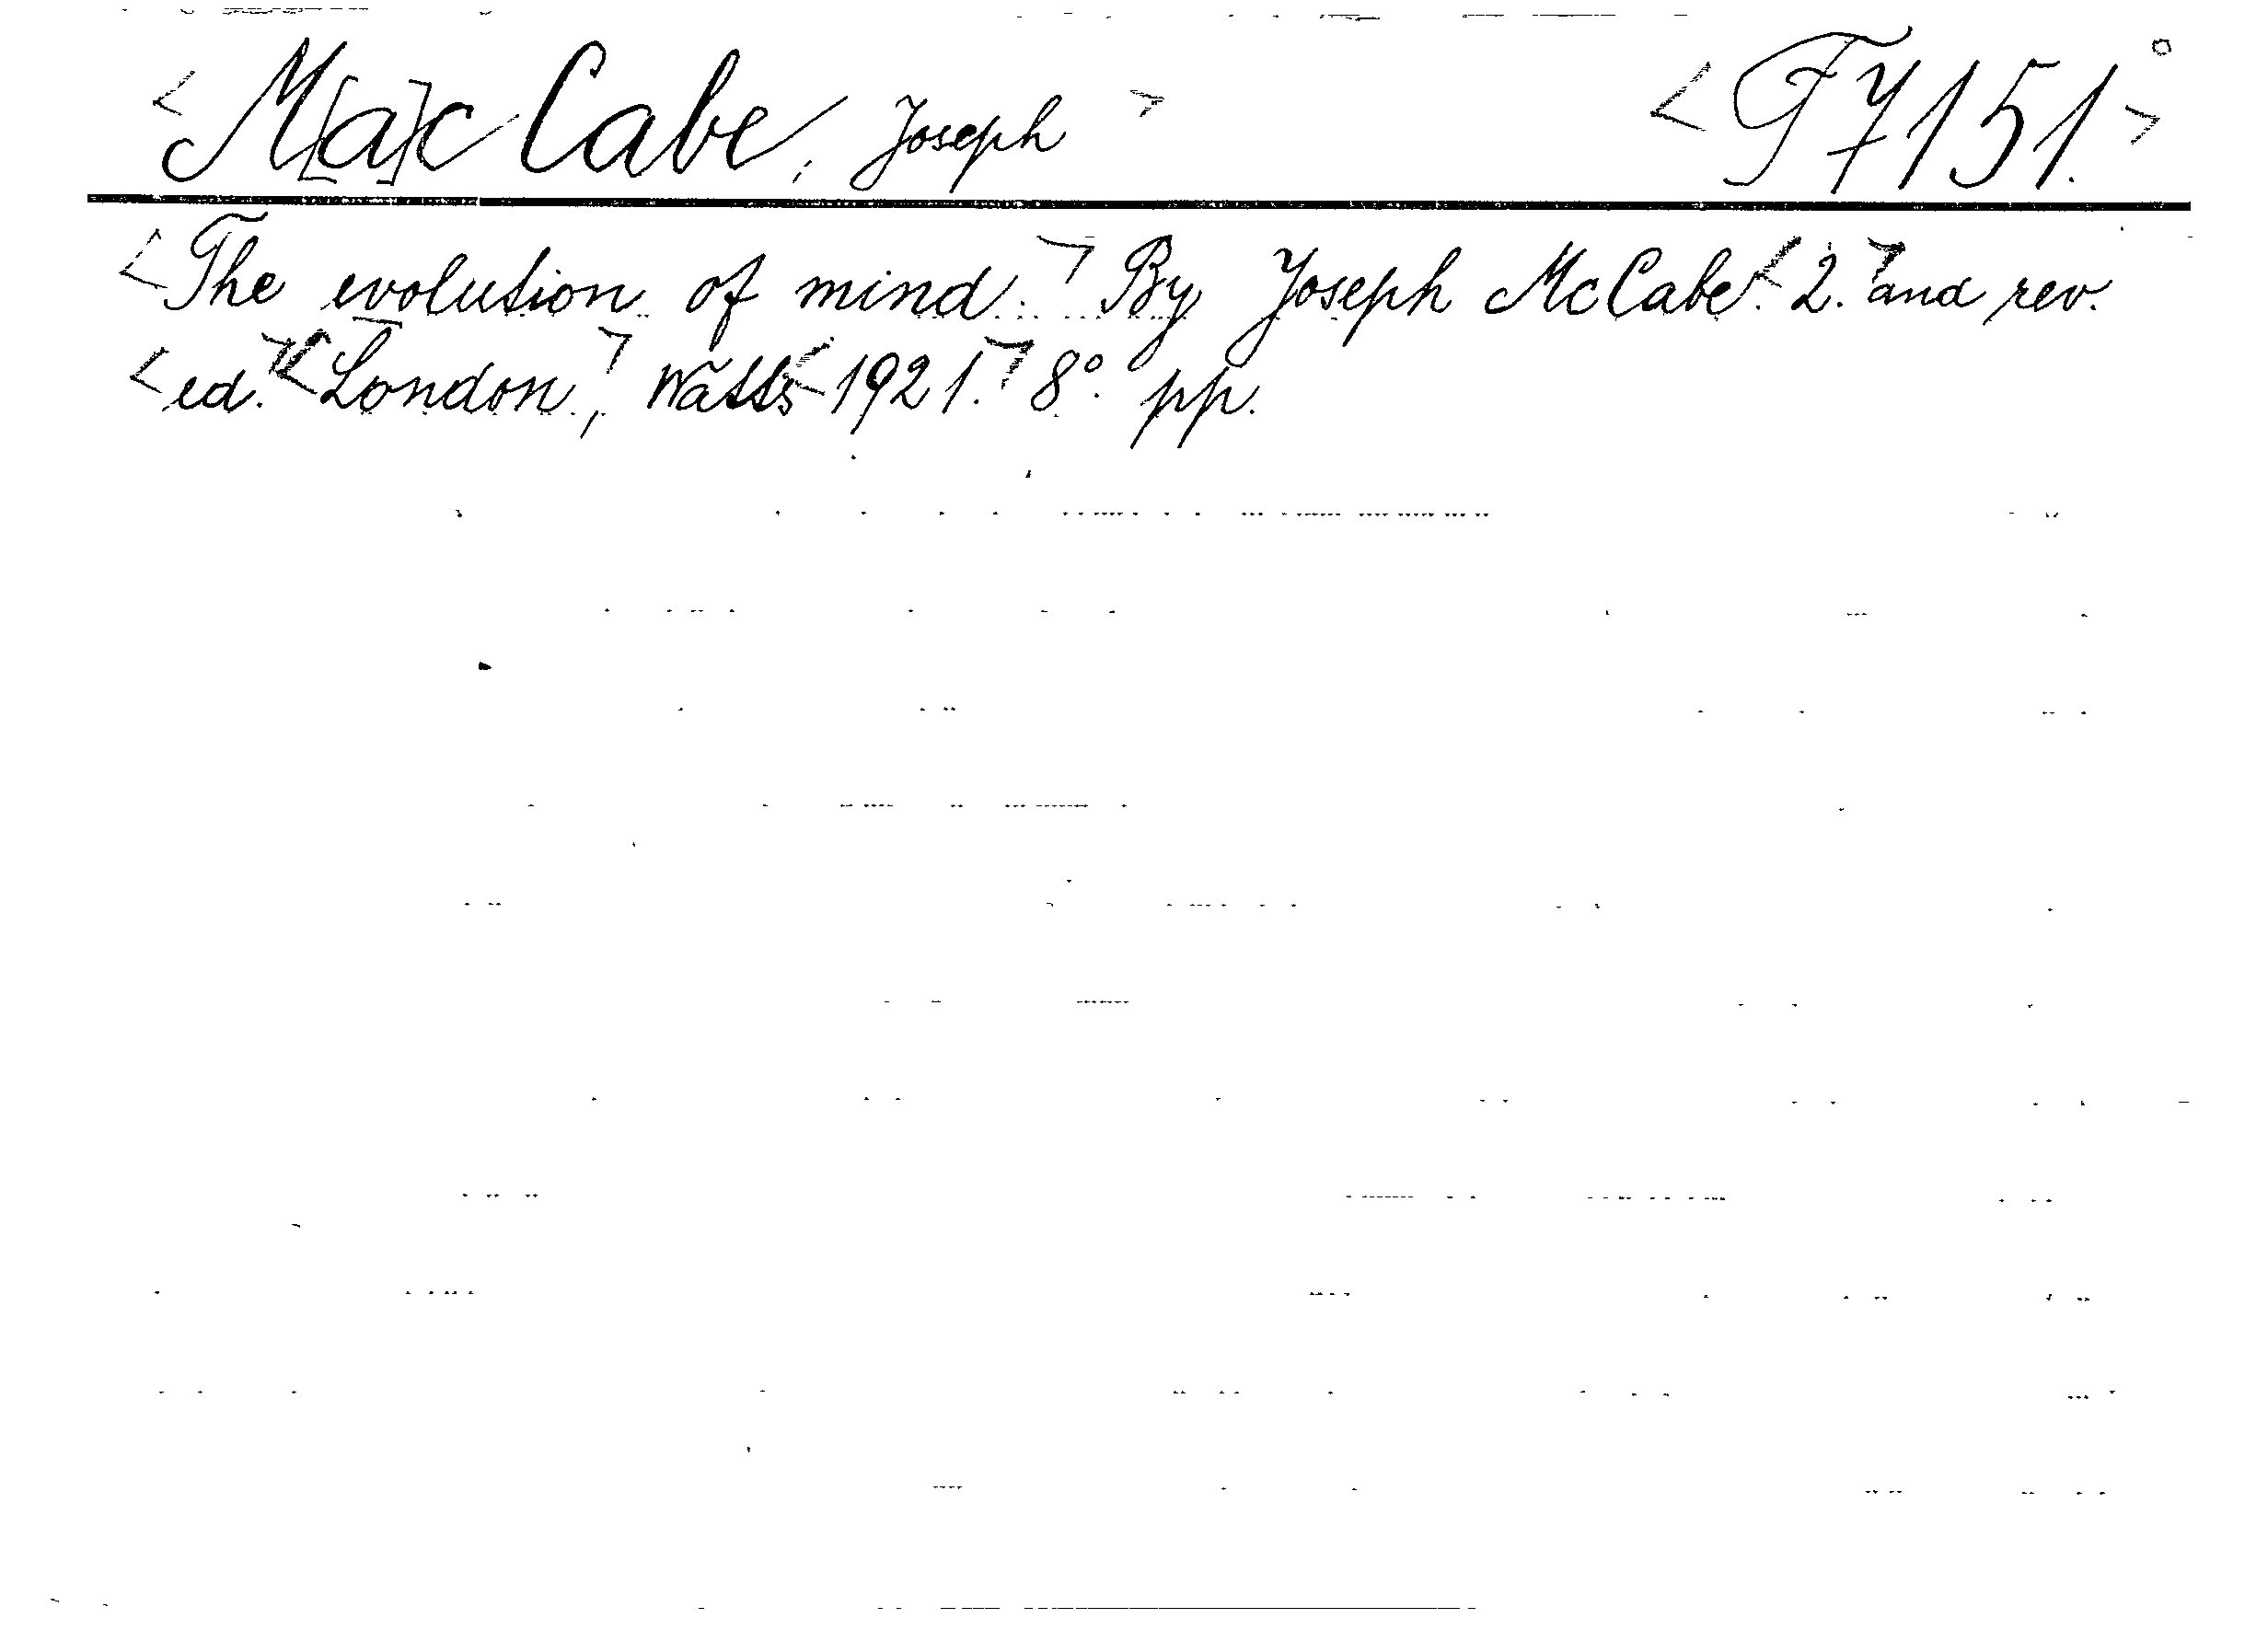 <M[a]c Cabe, Joseph> <F 7151.>°
<The evolution of mind.> By Joseph McCabe.< 2.> and rev.
<ed.><London,> Watts <1921.> 8°. pp.